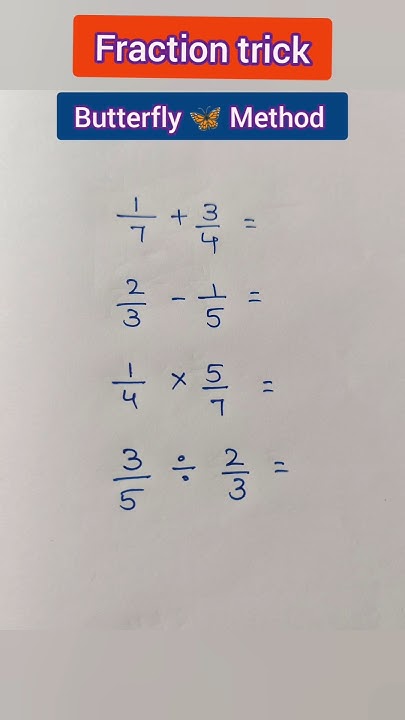 Fraction trick
Butterfly 🦋 Method
1/7 + 3/4 =
2/3 - 1/5 =
1/4 × 5/7 =
3/5 ÷ 2/3 =